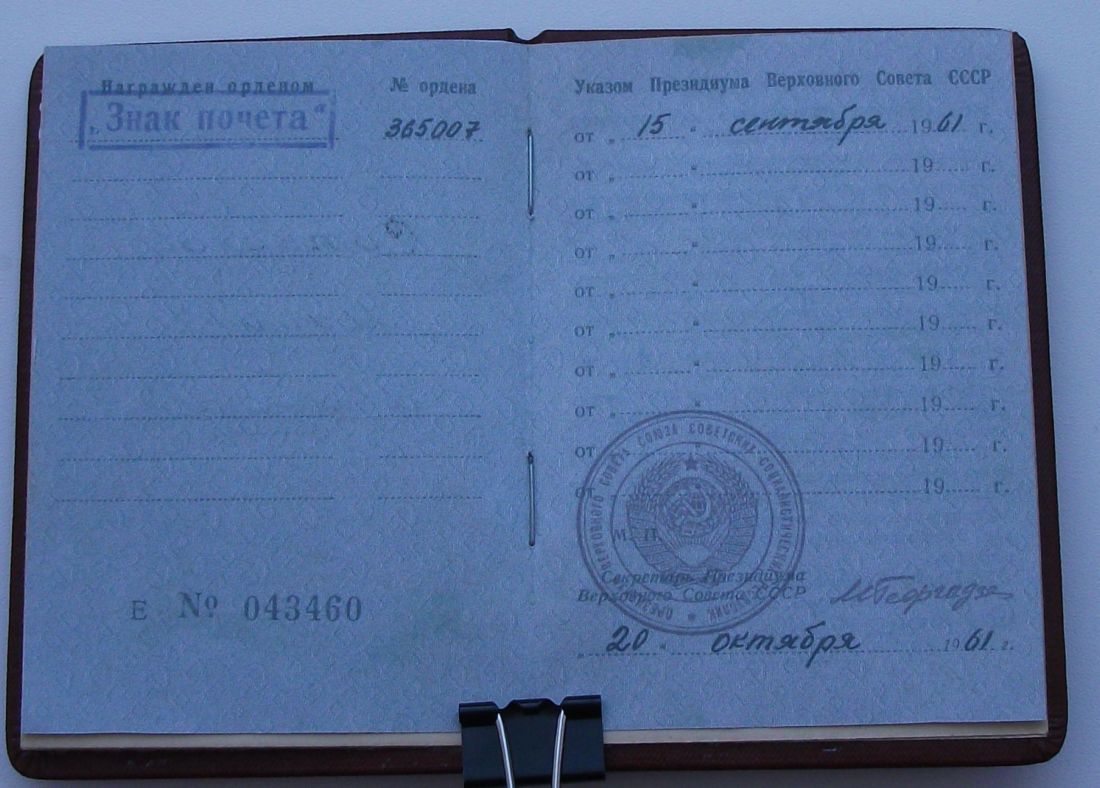 Награжден орденом
№ ордена
„Знак почета“
365007
Е № 043460
Указом Президиума Верховного Совета СССР
от „ 15 “ сентября 1961 г.
от „ “ 19 г.
от „ “ 19 г.
от „ “ 19 г.
от „ “ 19 г.
от „ “ 19 г.
от „ “ 19 г.
от „ “ 19 г.
от „ “ 19 г.
от „ “ 19 г.
ПРЕЗИДИУМ ВЕРХОВНОГО СОВЕТА СОЮЗА СОВЕТСКИХ СОЦИАЛИСТИЧЕСКИХ РЕСПУБЛИК
М. П.
Секретарь Президиума
Верховного Совета СССР
МГеоргадзе
„ 20 “ октября 1961 г.